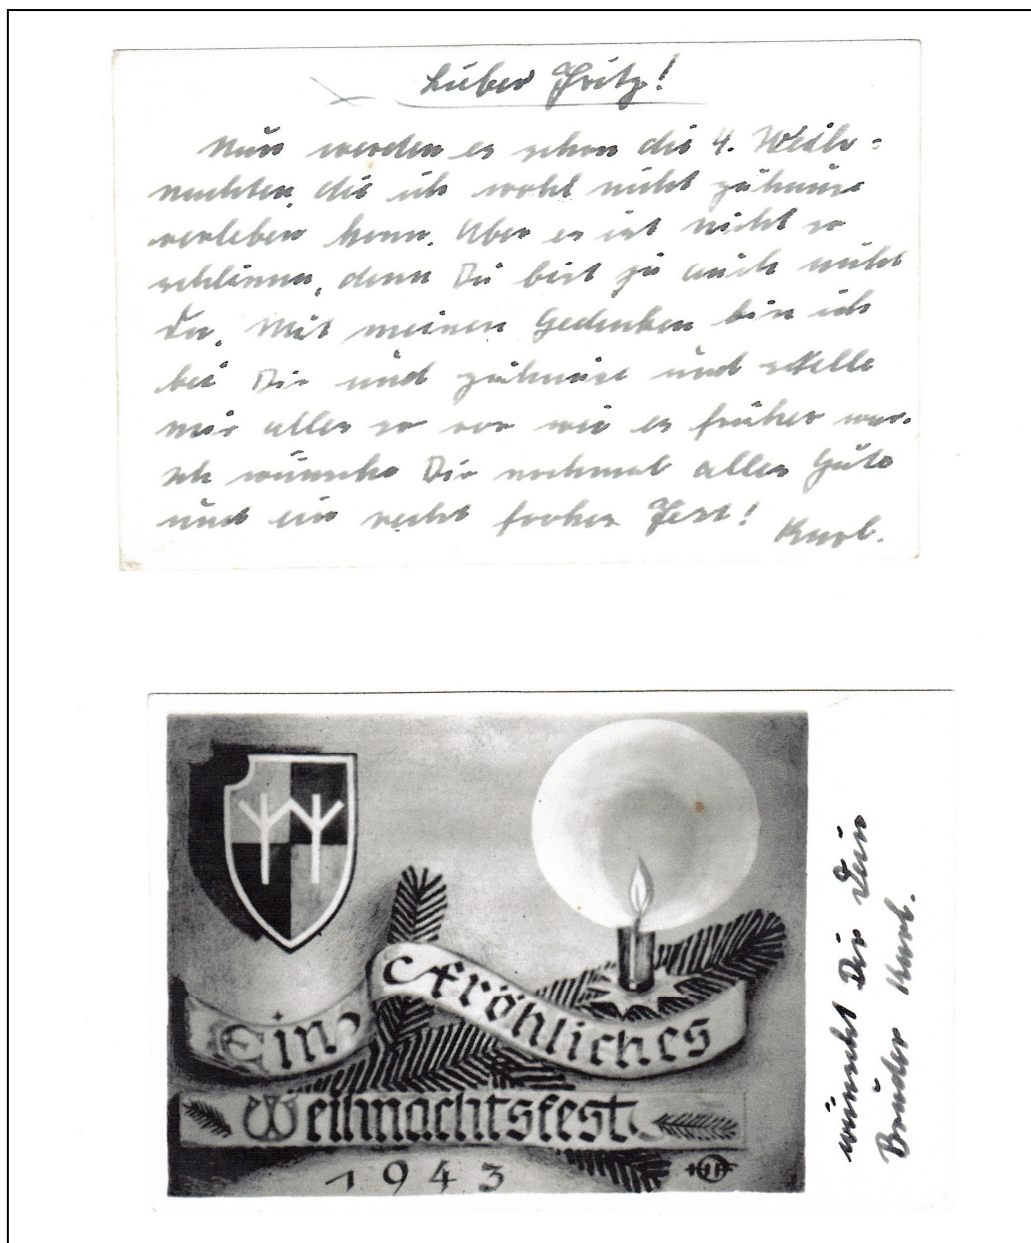 Lieber Fritz!
Nun werden es schon die 4. Weih-
nachten, die ich wohl nicht zuhause
verleben kann. Aber es ist nicht so
schlimm, denn Du bist ja auch nicht
da. Mit meinen Gedanken bin ich
bei Dir und zuhause und stelle
mir alles so vor wie es früher war.
Ich wünsche Dir nochmal alles Gute
und ein recht frohes Fest! Karl.
Ein Fröhliches
Weihnachtsfest
1943
wünscht Dir Dein
Bruder Karl.